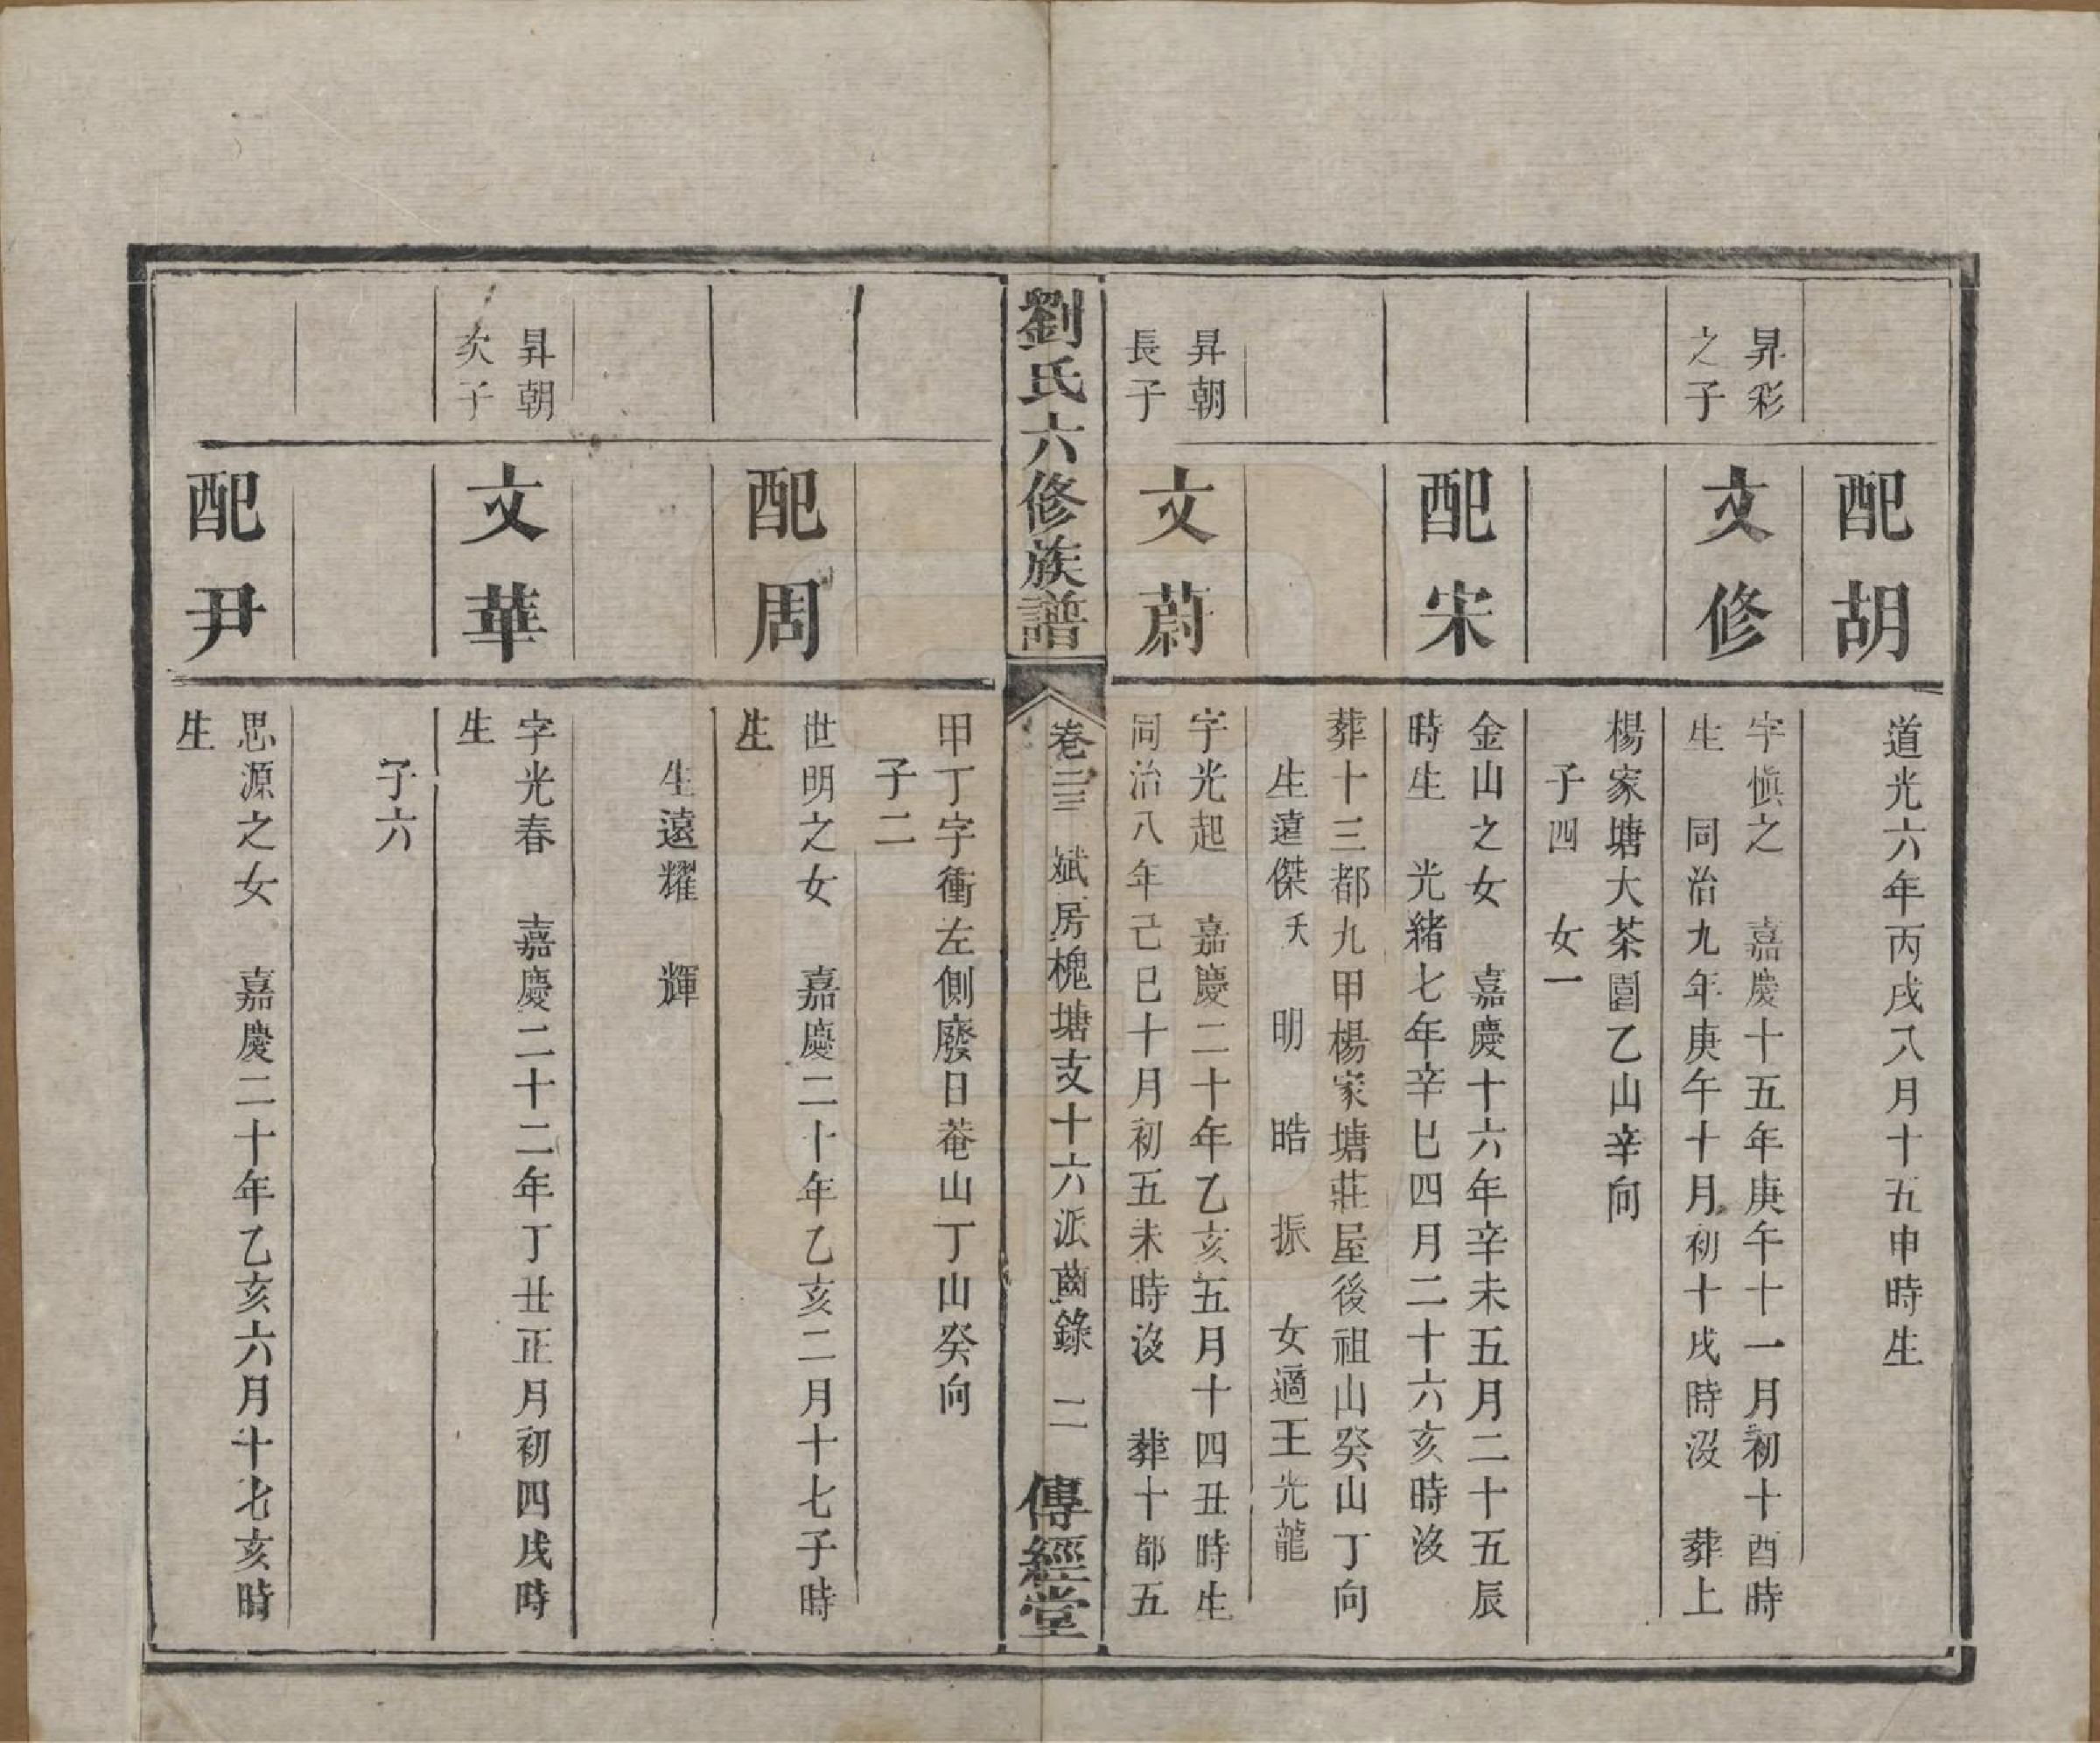 配胡
道光六年丙戌八月十五申時生
昇彩
之子
文修
字慎之　嘉慶十五年庚午十一月初十酉時
生　同治九年庚午十月初十戌時沒　葬上
楊家塘大茶園乙山辛向
子四　女一
配宋
金山之女　嘉慶十六年辛未五月二十五辰
時生　光緒七年辛巳四月二十六亥時沒
葬十三都九甲楊家塘莊屋後祖山癸山丁向
生遠傑　　明　皓　振　女適王光龍
昇朝
長子
文蔚
字光起　嘉慶二十年乙亥五月十四丑時生
同治八年己巳十月初五未時沒　葬十都五
劉氏六修族譜
卷二三　斌房槐塘支十六派齒錄　二
傳經堂
甲丁字衝左側廢日菴山丁山癸向
子二
配周
世明之女　嘉慶二十年乙亥二月十七子時
生
生遠耀　輝
昇朝
次子
文華
字光春　嘉慶二十二年丁丑正月初四戌時
生
子六
配尹
思源之女　嘉慶二十年乙亥六月十七亥時
生